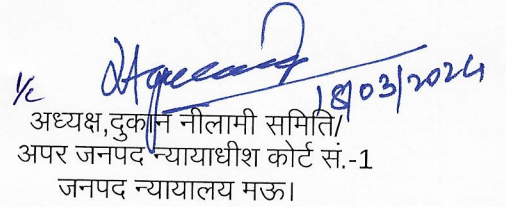 I/c
18/03/2024
अध्यक्ष,दुकान नीलामी समिति/
अपर जनपद न्यायाधीश कोर्ट सं.-1
जनपद न्यायालय मऊ।